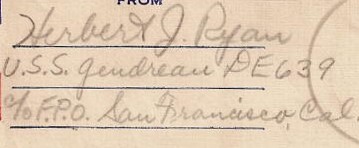 FROM
Herbert J. Ryan
U.S.S. Gendreau DE639
c/o F.P.O. San Francisco, Cal.